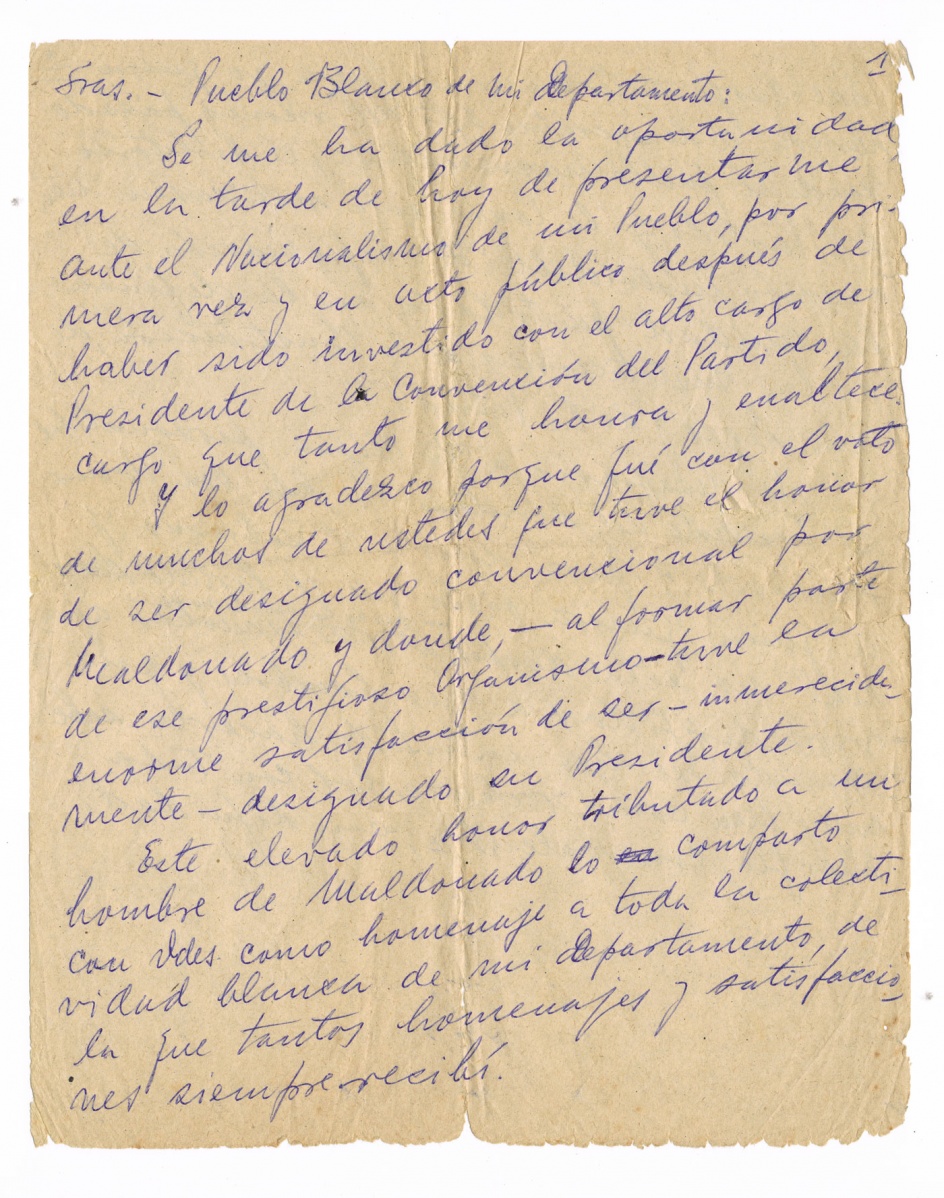 1
Sras. - Pueblo Blanco de mi Departamento:
Se me ha dado la oportunidad
en la tarde de hoy de presentarme
ante el Nacionalismo de mi Pueblo, por pri-
mera vez y en acto público después de
haber sido investido con el alto cargo de
Presidente de la Convención del Partido,
cargo que tanto me honra y enaltece.
Y lo agradezco porque fué con el voto
de muchos de ustedes que tuve el honor
de ser designado convencional por
Maldonado y donde, - al formar parte
de ese prestigioso Organismo - tuve la
enorme satisfacción de ser - inmerecida-
mente - designado su Presidente.
Este elevado honor tributado a un
hombre de Maldonado lo comparto
con Vdes. como homenaje a toda la colecti-
vidad blanca de mi Departamento, de
la que tantos homenajes y satisfaccio-
nes siempre recibí.